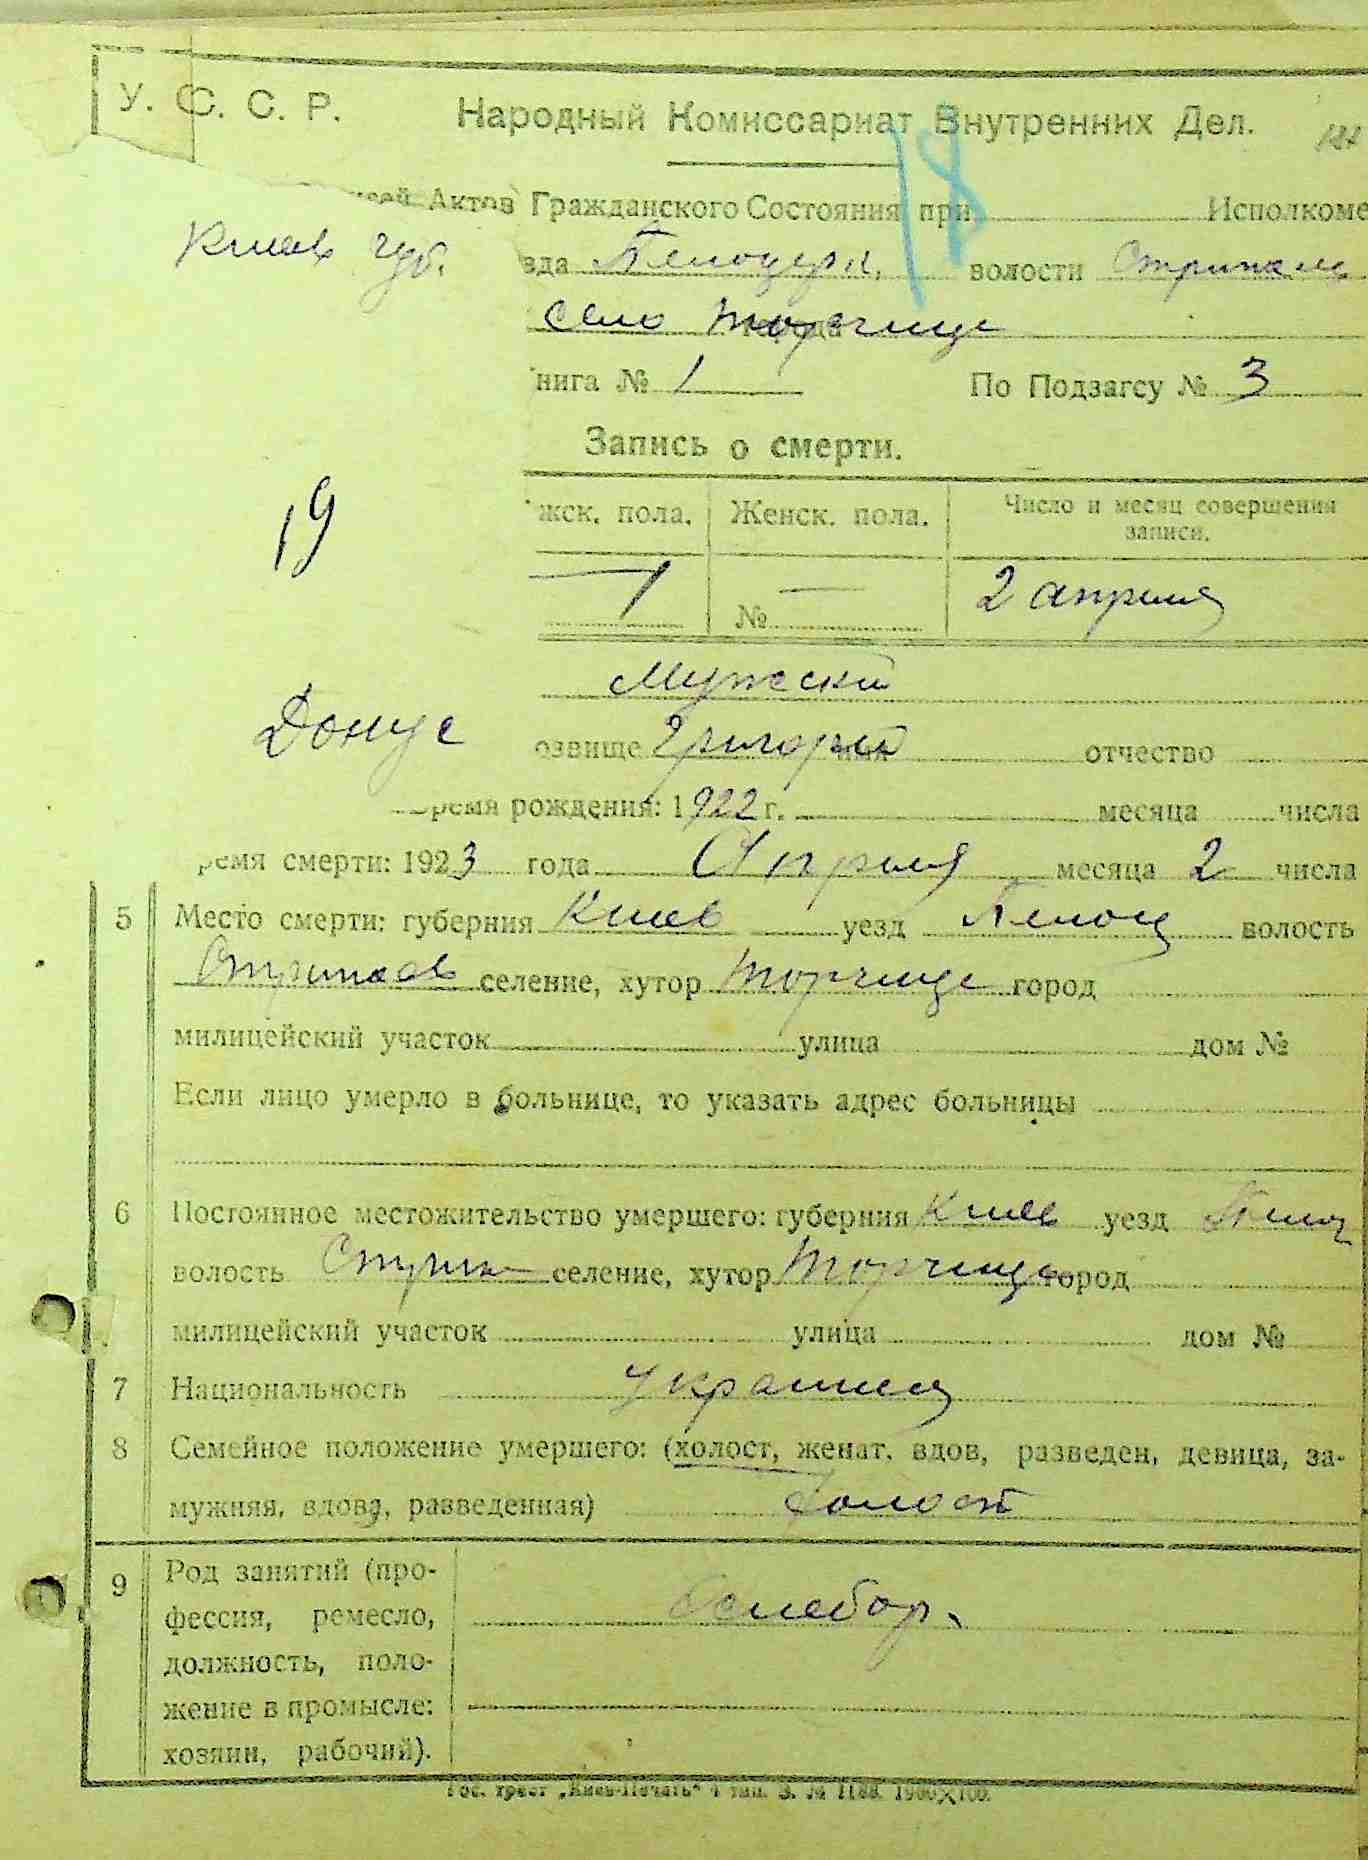 У. С. С. Р. Народный Комиссариат Внутренних Дел.
18
Актов Гражданского Состояния при Исполкоме
Киев губ. зда Белоцерк, волости
село Торчице
нига № 1 По Подзагсу № 3
Запись о смерти.
жск. пола. Женск. пола. Число и месяц совершения
записи.
19
1 № — 2 апреля
Мужской
Донус озвище Григорий имя отчество
ремя рождения: 1922 г. месяца числа
ремя смерти: 1923 года Апреля месяца 2 числа
5 Место смерти: губерния Киев уезд Белоц волость
селение, хутор Торчице город
милицейский участок улица дом №
Если лицо умерло в больнице, то указать адрес больницы
6 Постоянное местожительство умершего: губерния Киев уезд Белоц
волость селение, хутор Торчице город
милицейский участок улица дом №
7 Национальность
8 Семейное положение умершего: (холост, женат, вдов, разведен, девица, за-
мужняя, вдова, разведенная) холост
9 Род занятий (про-
фессия, ремесло,
должность, поло-
жение в промысле:
хозяин, рабочий).
Гос. трест „Киев-Печать" 4 тип. З. №